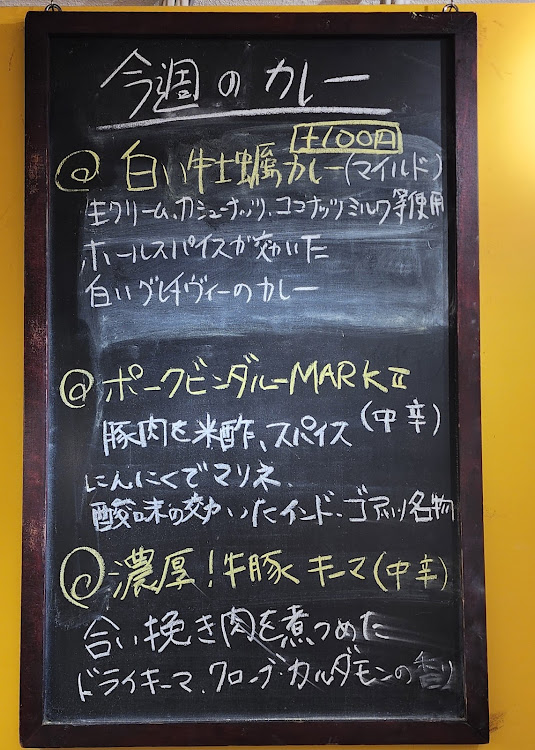 今週のカレー
+100円
@ 白い牡蠣カレー(マイルド)
生クリーム、カシューナッツ、ココナッツミルク等使用
ホールスパイスが効いた
白いグレイヴィーのカレー
@ ポークビンダルーMARKⅡ
(中辛)
豚肉を米酢、スパイス
にんにくでマリネ、
酸味の効いたインド・ゴアの名物
@ 濃厚!牛豚キーマ(中辛)
合い挽き肉を煮つめた
ドライキーマ、クローブ・カルダモンの香り